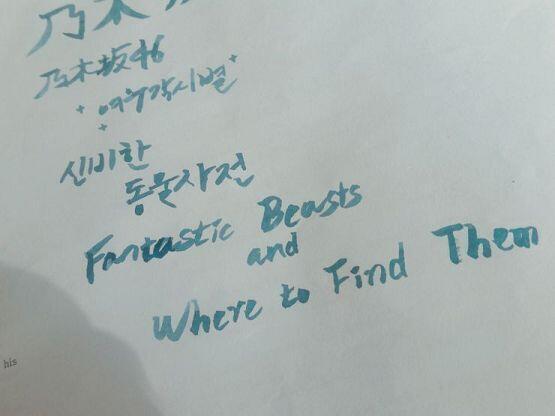 乃木
乃木坂46
여우각시별
신비한
동물사전
Fantastic Beasts
and
Where to Find Them
his